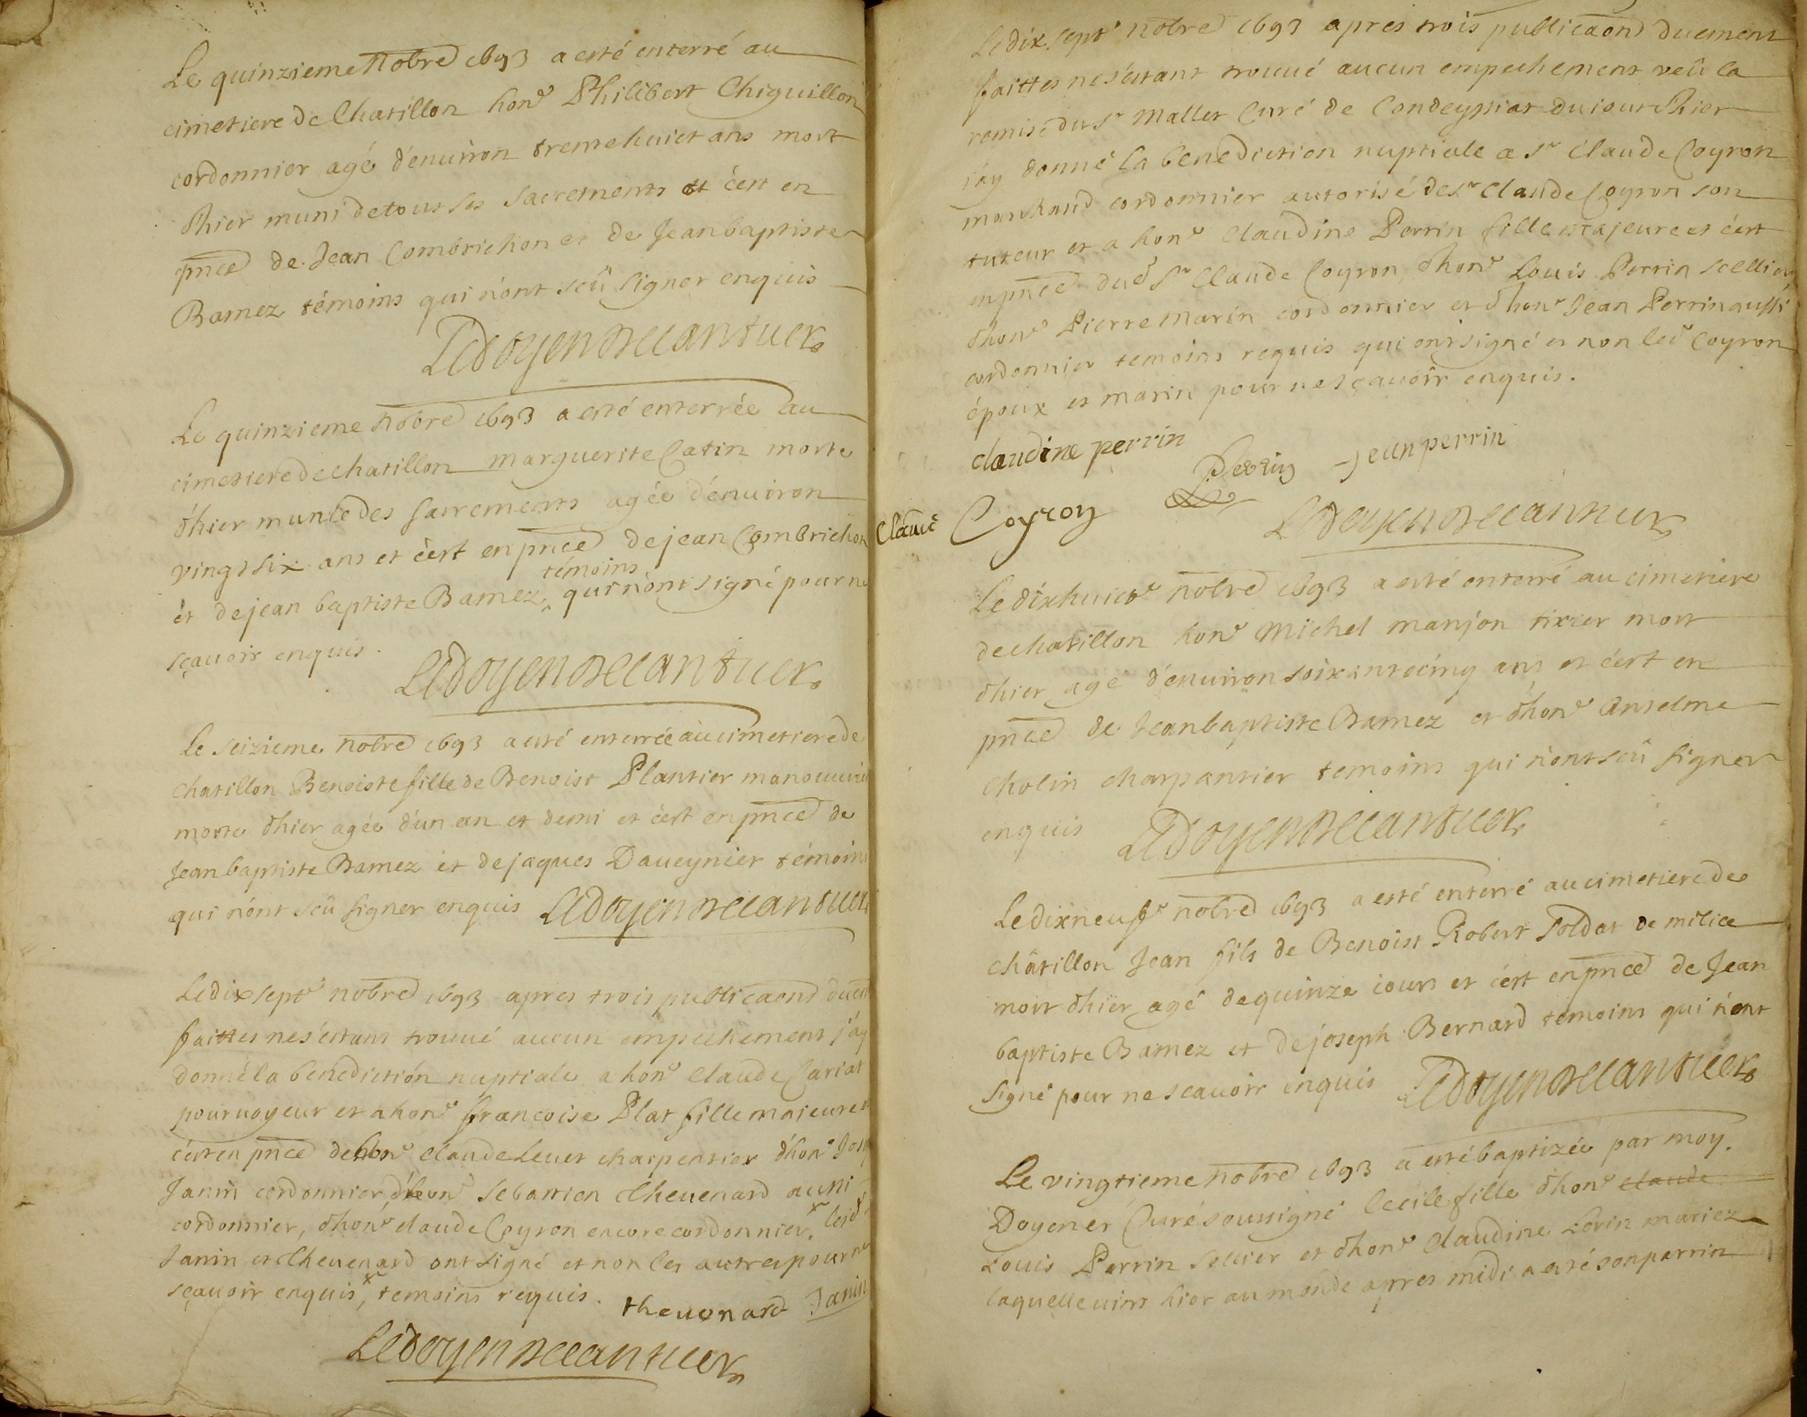 Le quinzieme nobre 1693 a esté enterré au
cimetiere de Chatillon hon^e Philibert Chiquillon
cordonnier agé d'enuiron trente huict ans mort
d'hier muni de tous ses sacrements et c'est en
pnce de Jean Combrichon et de Jean baptiste
Bamez témoins qui n'ont sceû signer enquis
Le doyen
Le quinzieme nobre 1693 a esté enterrée au
cimetiere de chatillon marguerite Catin morte
d'hier munie des sacrements agée d'enuiron
vingt six ans et c'est en pnce de jean Combrichon
témoins
et de jean baptiste Bamez, qui n'ont signé pour ne
sçauoir enquis.
Le doyen
Le seizieme nobre 1693 a esté enterrée au cimetiere de
chatillon Benoiste fille de Benoist Plantier manouurie
morte d'hier agée d'un an et demi et c'est en pnce de
Jean baptiste Bamez et de jaques Daueynier témoins
qui n'ont sceû signer enquis Le doyen
Le dix sept^e nobre 1693 apres trois publicaons
faittes ne s'estant trouué aucun empechement j'ay
donné la bénédiction nuptiale a hon^e Claude Cariat
pouruoyeur et a hon^e francoise Plat fille majeure
c'est en pnce de hon^e claude Leuet charpentier d'hon^e
Janin cordonnier, d'hon^e Sebastien Theuenard aussi
cordonnier, d'hon^e claude Coyron encore cordonnier, lesd
Janin et Theuenard ont signé et non les autres pour ne
sçauoir enquis, temoins requis. theuenard Janin
Le doyen
Le dix sept^e nobre 1693 apres trois publicaons duement
faittes ne s'estant trouué aucun empechement veû la
remise du s^r Mallet Curé de Condeyssiat du jour d'hier
j'ay donné la bénédiction nuptiale a s^r Claude Coyron
marchand cordonnier autorisé de s^r Claude Coyron son
tuteur et a hon^e Claudine Perrin fille majeure et c'est
en pnce dud s^r Claude Coyron d'hon^e Louis Perrin scellier
d'hon^e Pierre Marin cordonnier et d'hon^e Jean Perrin aussi
cordonnier temoins requis qui ont signé et non led Coyron
époux et marin pour ne sçauoir enquis.
claudine perrin Perrin jean perrin
Claude Coyron Le doyen
Le dixhuict^e nobre 1693 a esté enterré au cimetiere
de chatillon hon^e Michel manjon tixier mort
d'hier agé d'enuiron soixante cinq ans et c'est en
pnce de Jean baptiste Bamez et d'hon^e Anselme
Cholin charpantier temoins qui n'ont sceû signer
enquis Le doyen
Le dixneuf^e nobre 1693 a esté enterré au cimetiere de
châtillon Jean fils de Benoist Robert soldat de milice
mort d'hier agé de quinze jours et c'est en pnce de Jean
baptiste Bamez et de joseph Bernard temoins qui n'ont
signé pour ne scauoir enquis Le doyen
Le vingtieme nobre 1693 a esté baptizée par moy
Doyen et Curé soussigné Cecile fille d'hon^e claude
Louis Perrin sellier et d'hon^e Claudine mariez
laquelle uint hier au monde apres midi a esté son parrin